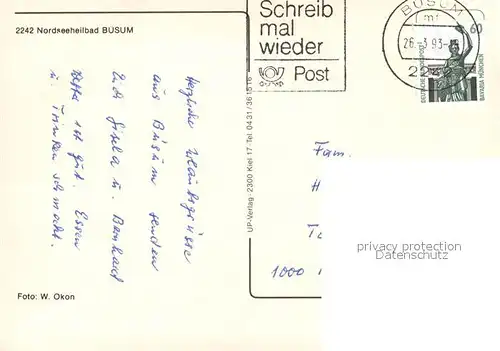 2242 Nordseeheilbad BUSUM
Herzliche Urlaubsgrüsse
aus Büsum senden
Euch Gisela u. Bernhard
Wetter ist gut. Essen
u. Trinken schmeckt.
Foto: W. Okon
UP-Verlag · 2300 Kiel 17 Tel. 04 31 / 36 15 16
Schreib
mal
wieder
Post
BUSUM
26.-3.93-
224
60
DEUTSCHE BUNDESPOST
BAVARIA MÜNCHEN
Fam.
H
T
1000
privacy protection